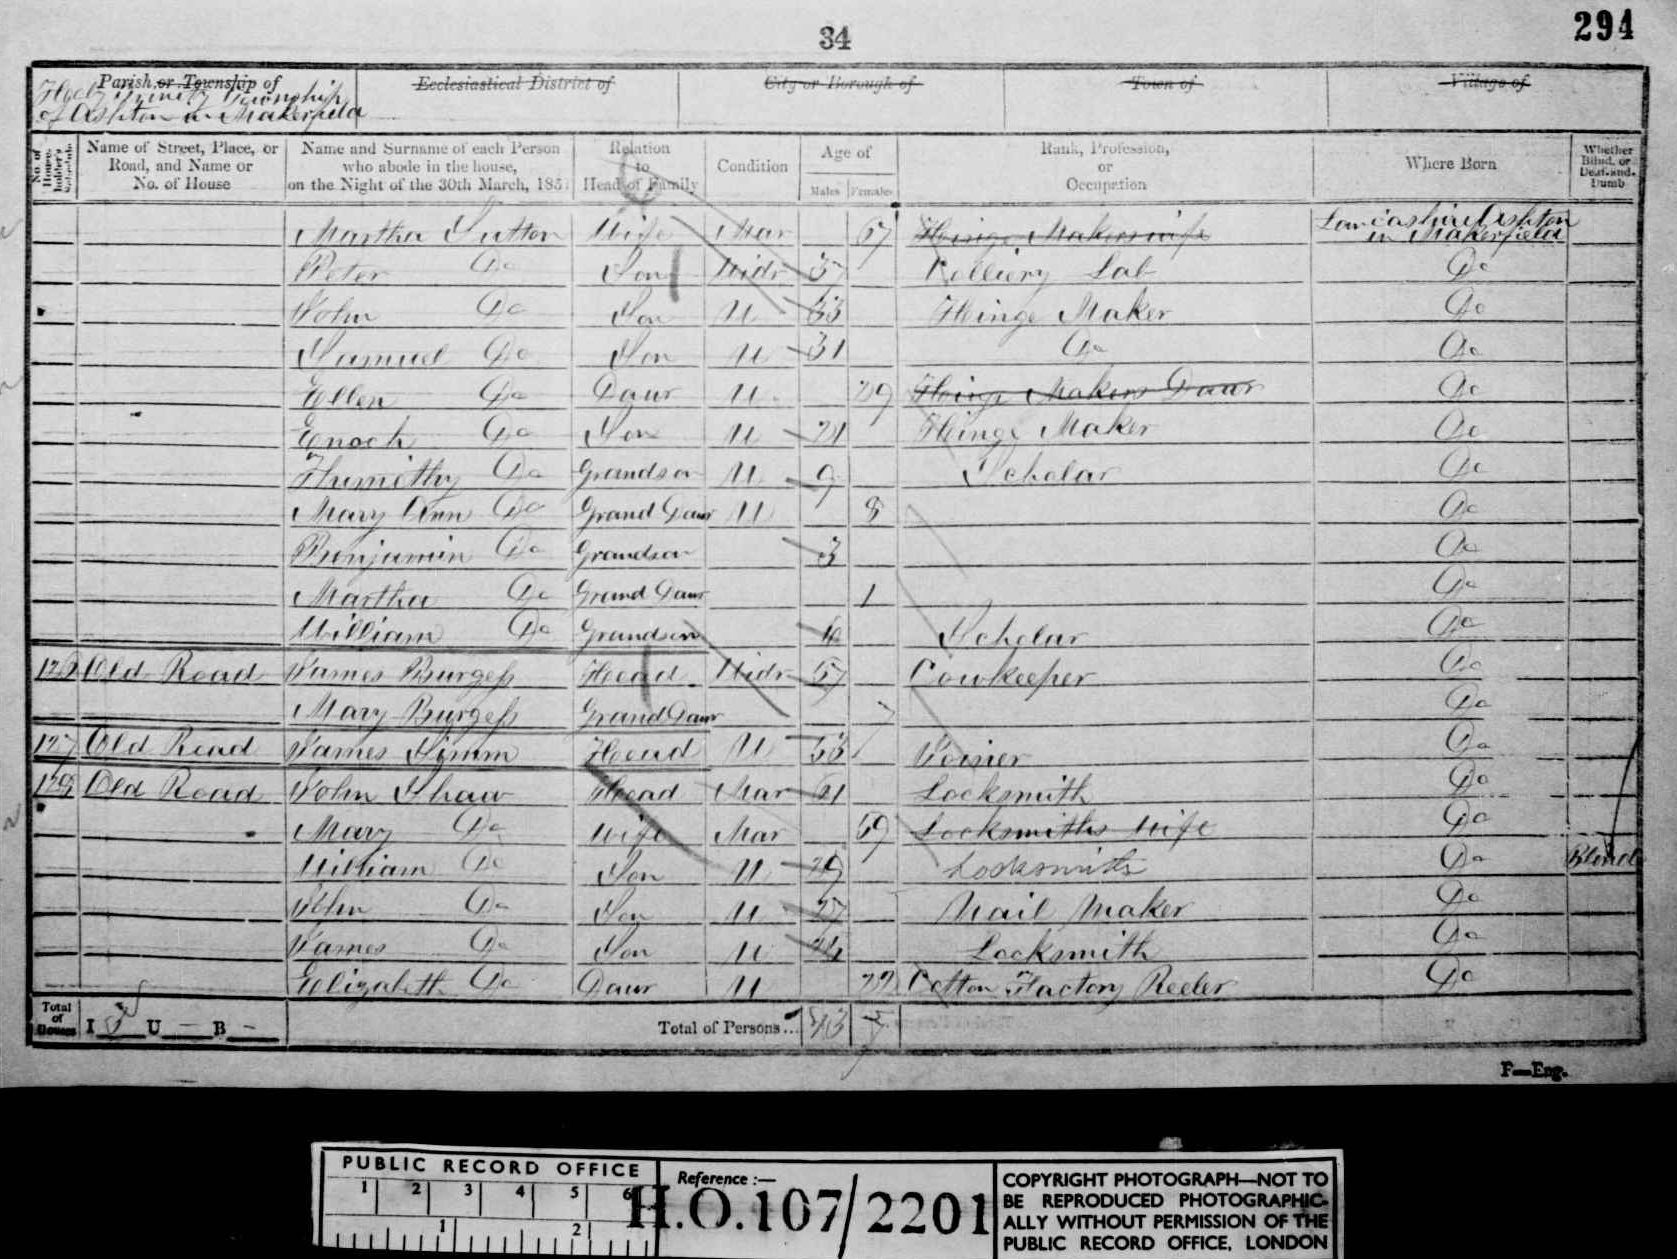 34
294
Parish or Township of
Holy Trinity Township
of Ashton in Makerfield
Ecclesiastical District of
City or Borough of
Town of
Village of
No. of House-holder's Schedule
Name of Street, Place, or Road, and Name or No. of House
Name and Surname of each Person who abode in the house, on the Night of the 30th March, 1851
Relation to Head of Family
Condition
Age of
Males
Females
Rank, Profession, or Occupation
Where Born
Whether Blind, or Deaf-and-Dumb
Martha Sutton Wife Mar 67 Hinge Makers wife Lancashire Ashton in Makerfield
Peter Do Son Widr 37 Colliery Lab Do
John Do Son U 33 Hinge Maker Do
Samuel Do Son U 31 Do Do
Ellen Do Daur U 29 Hinge Makers Daur Do
Enoch Do Son U 21 Hinge Maker Do
Thimothy Do Grandson U 9 Scholar Do
Mary Ann Do Grand Daur U 8 Do
Benjamin Do Grandson 3 Do
Martha Do Grand Daur 1 Do
William Do Grandson Scholar Do
Old Road James Burgess Head Widr 67 Cowkeeper Do
Mary Burgess Grand Daur 7 Do
127 Old Road James Simm Head U 53 Do
128 Old Road John Shaw Head Mar 61 Locksmith Do
Mary Do Wife Mar 59 Locksmiths Wife Do
William Do Son U 29 Locksmith Do Blind
John Do Son U 27 Nail Maker Do
James Do Son U 24 Locksmith Do
Elizabeth Do Daur U 22 Cotton Factory Reeler Do
Total of Houses I 3 U — B —
Total of Persons... 13 7
F—Eng.
PUBLIC RECORD OFFICE
1 2 3 4 5 6
1 2
Reference :—
H.O. 107/2201
COPYRIGHT PHOTOGRAPH—NOT TO
BE REPRODUCED PHOTOGRAPHIC-
ALLY WITHOUT PERMISSION OF THE
PUBLIC RECORD OFFICE, LONDON